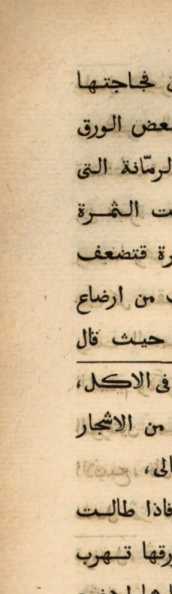 فجاجتها
بعض الورق
الرمّانة التى
الثمرة
فتضعف
من ارضاع
حيث قال
فى الاكل،
من الاشجار
فاذا طالت
ورقها تهرب